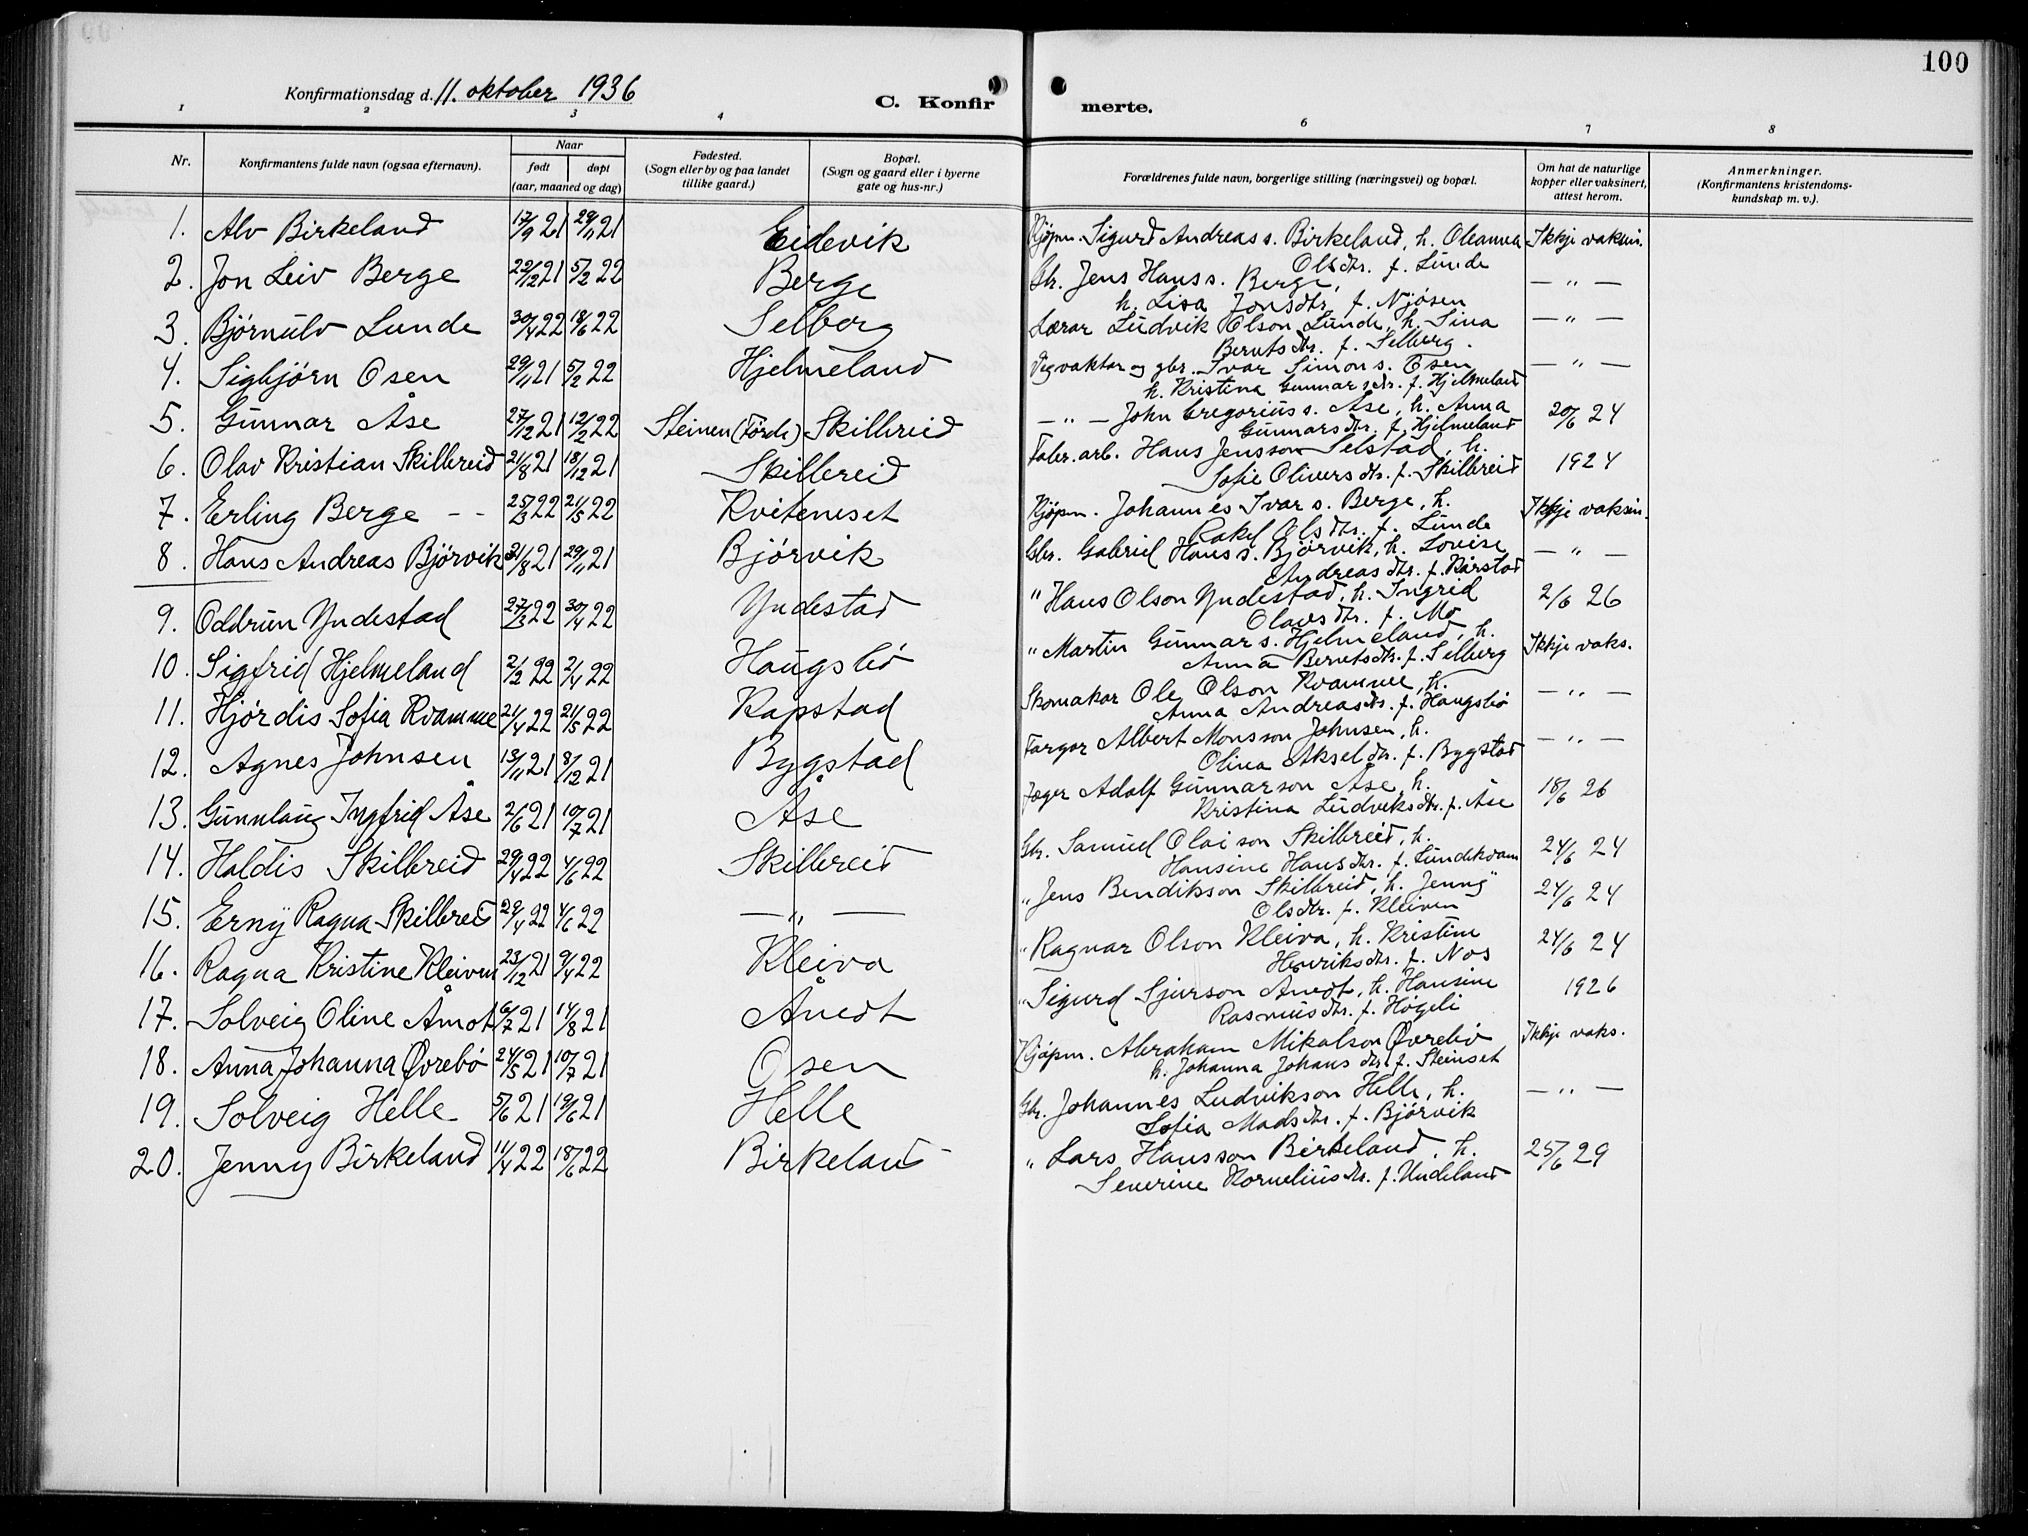 100
Konfirmationsdag d. 11. oktober 1936
C. Konfirmerte.
1 2 3 4 6 7 8
Nr. Konfirmantens fulde navn (ogsaa efternavn). Naar født døpt (aar, maaned og dag) Fødested. (Sogn eller by og paa landet tillike gaard.) Bopæl. (Sogn og gaard eller i byerne gate og hus-nr.) Forældrenes fulde navn, borgerlige stilling (næringsvei) og bopæl. Om hat de naturlige kopper eller vaksinert, attest herom. Anmerkninger. (Konfirmantens kristendoms-kundskap m. v.).
1. Alv Birkeland 17/9 21 29/11 21 Eidevik Kjøpm. Sigurd Andreas s. Birkeland, h. Oleanna Ikkje vaksin.
Olsdtr. f. Lunde
2. Jon Leiv Berge 22/12 21 5/2 22 Berge Gbr. Jens Hans s. Berge, — " —
h. Lisa Jonsdtr. f. Njøsen
3. Bjørnulv Lunde 30/4 22 18/6 22 Selberg Lærar Ludvik Olson Lunde, h. Sina — " —
Berntsdtr. f. Selberg.
4. Sigbjørn Osen 29/11 21 5/2 22 Hjelmeland Vegvaktar og gbr. Ivar Simon s. Osen — " —
h. Kristina Gunnarsdtr. f. Hjelmeland
5. Gunnar Åse 27/12 21 12/2 22 Steinen (Førde) Skilbreid — " — John Gregorius s. Åse, h. Anna 20/6 24
Gunnarsdtr. f. Hjelmeland
6. Olav Kristian Skilbreid 21/8 21 18/12 21 Skilbreid Fabr. arb. Hans Jensson Selstad, h. 1924
Sofie Oliversdtr. f. Skilbreid
7. Erling Berge - - 25/3 22 21/5 22 Kviteneset Kjøpm. Johannes Ivar s. Berge, h. Ikkje vaksin.
Rakel Olsdtr. f. Lunde
8. Hans Andreas Bjørvik 31/8 21 29/11 21 Bjørvik Gbr. Gabriel Hans s. Bjørvik, h. Lovise — " —
Andreasdtr. f. Kårstad
9. Oddrun Yndestad 27/3 22 30/4 22 Yndestad " Hans Olson Yndestad, h. Ingrid 2/6 26
Olavsdtr. f. Mo
10. Sigfrid Hjelmeland 2/2 22 2/4 22 Haugsbø " Martin Gunnar s. Hjelmeland, h. Ikkje vaks.
Anna Berntsdtr. f. Selberg
11. Hjørdis Sofia Kvamme 21/4 22 21/5 22 Rapstad Skomakar Ole Olson Kvamme, h. — " —
Anna Andreasdtr. f. Haugsbø
12. Agnes Johnsen 13/11 21 8/12 21 Bygstad Fargar Albert Monsson Johnsen, h. — " —
Olina Akseldtr. f. Bygstad
13. Gunnlaug Ingfrid Åse 2/6 21 10/7 21 Åse Jæger Adolf Gunnarson Åse, h. 18/6 26
Kristina Ludviksdtr. f. Åse
14. Haldis Skilbreid 29/4 22 4/6 22 Skilbreid Gbr. Samuel Olai son Skilbreid, h. 24/6 24
Hansine Hansdtr. f. Lundekvam
15. Erny Ragna Skilbreid 29/4 22 4/6 22 — " — " Jens Bendikson Skilbreid, h. Jenny 24/6 24
Olsdtr. f. Kleiven
16. Ragna Kristine Kleiven 23/12 21 9/4 22 Kleiva " Ragnar Olson Kleiva, h. Kristine 24/6 24
Henriksdtr. f. Nos
17. Solveig Oline Åmot 16/7 21 14/8 21 Åmot " Sigurd Sjurson Åmot, h. Hansine 1926
Rasmusdtr. f. Høgeli
18. Anna Johanna Øvrebø 24/5 21 10/7 21 Osen Kjøpm. Abraham Mikalson Øvrebø Ikkje vaks.
h. Johanna Johansdtr. f. Steinset
19. Solveig Helle 5/6 21 19/6 21 Helle Gbr. Johannes Ludvikson Helle, h. — " —
Sofia Madsdtr. f. Bjørvik
20. Jenny Birkeland 11/4 22 18/6 22 Birkeland " Lars Hansson Birkeland, h. 25/6 29
Severine Korneliusdtr. f. Undeland